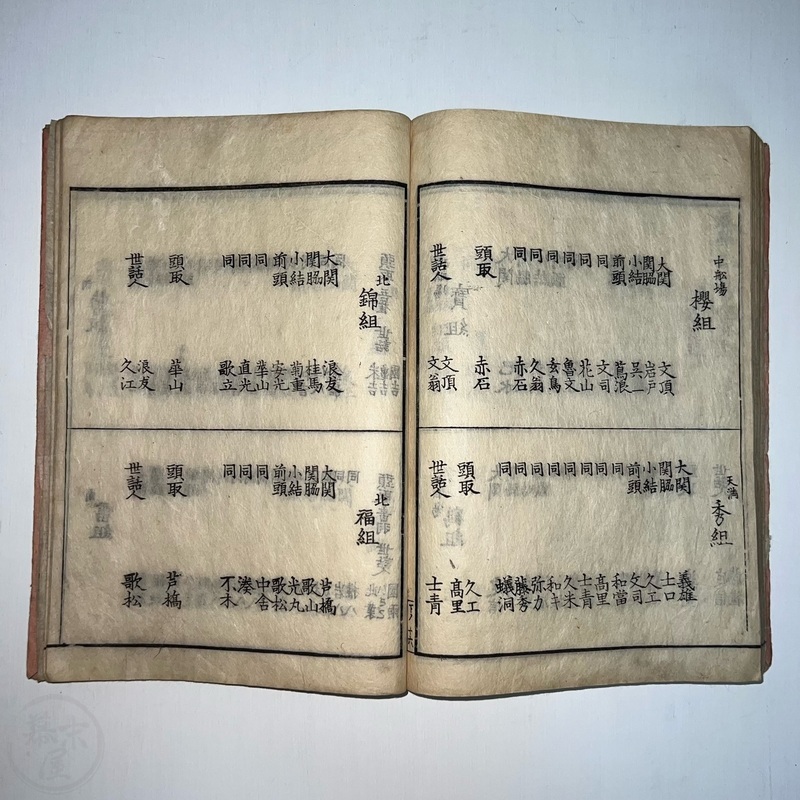 中船場
櫻組
大関 文頂
関脇 岩戸
小結 呉一
前頭 蔦浪
同 文司
同 花山
同 魯文
同 玄鳥
同 久翁
同 赤石
頭取 赤石
世話人 文頂
文翁
天満
秀組
大関 義雄
関脇 士口
小結 久工
前頭 文司
同 和當
同 高里
同 士青
同 久米
同 和キ
同 弥力
同 藤秀
同 蟻洞
頭取 久工
高里
世話人 士青
北
錦組
大関 浪友
関脇 桂馬
小結 菊重
前頭 安光
同 華山
同 直光
同 歌立
頭取 華山
世話人 浪友
久江
北
福組
大関 芦橋
関脇 歌山
小結 光丸
前頭 歌松
同 中舎
同 湊
同 不木
頭取 芦橋
世話人 歌松